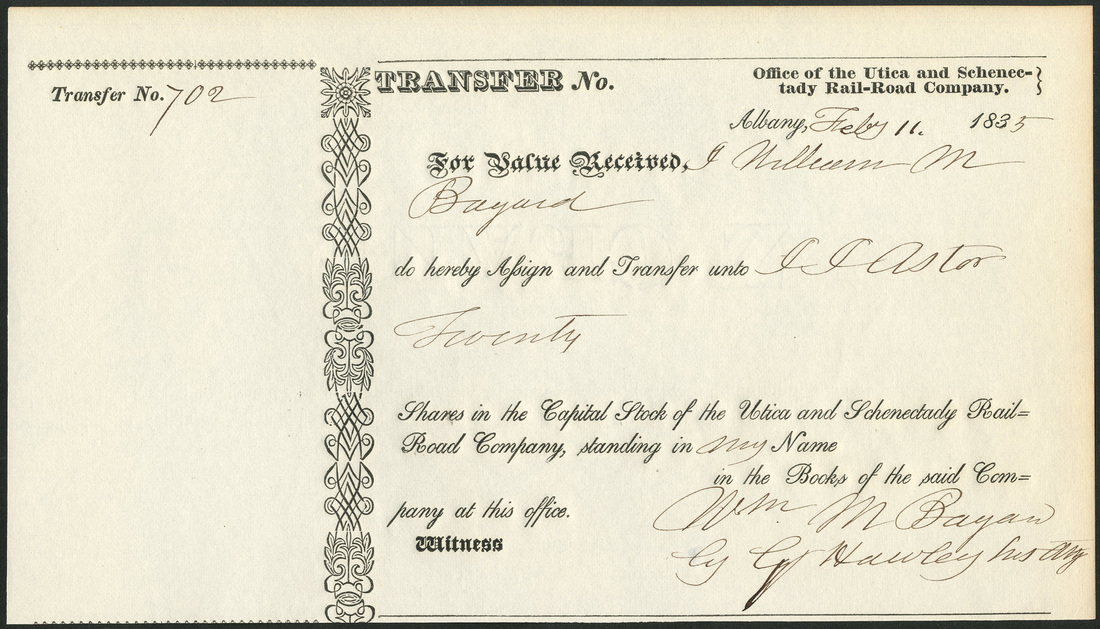 Transfer No. 702
TRANSFER No.
Office of the Utica and Schenec-
tady Rail-Road Company.
Albany, Feby 11. 1835
For Value Received, I William M
Bayard
do hereby Assign and Transfer unto J J Astor
Twenty
Shares in the Capital Stock of the Utica and Schenectady Rail=
Road Company, standing in my Name
in the Books of the said Com=
pany at this office.
Wm. M Bayard
Witness
by Hawley his Atty